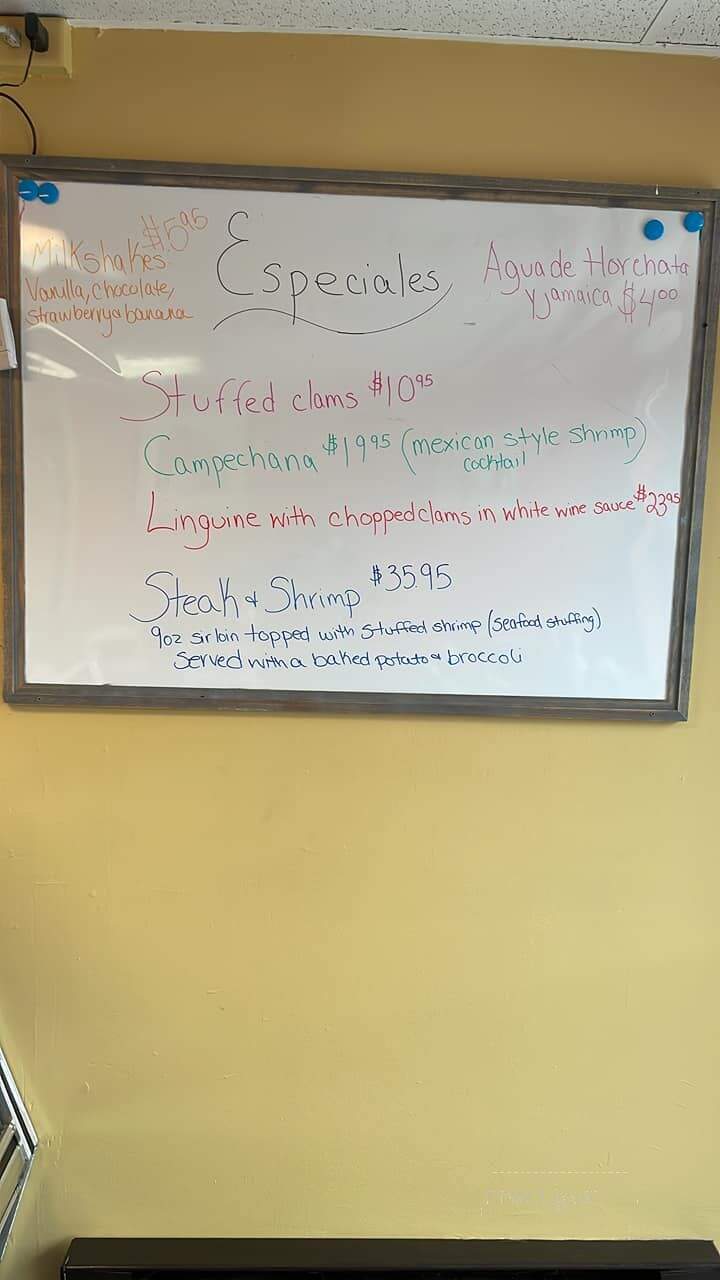 $5.95
Milkshakes:
Vanilla, Chocolate,
Strawberry & banana
Especiales
Agua de Horchata
y Jamaica $4.00
Stuffed clams $10.95
Campechana $19.95 (mexican style shrimp)
cocktail
Linguine with chopped clams in white wine sauce $23.95
Steak & Shrimp $35.95
9oz sirloin topped with stuffed shrimp (seafood stuffing)
Served with a baked potato & broccoli